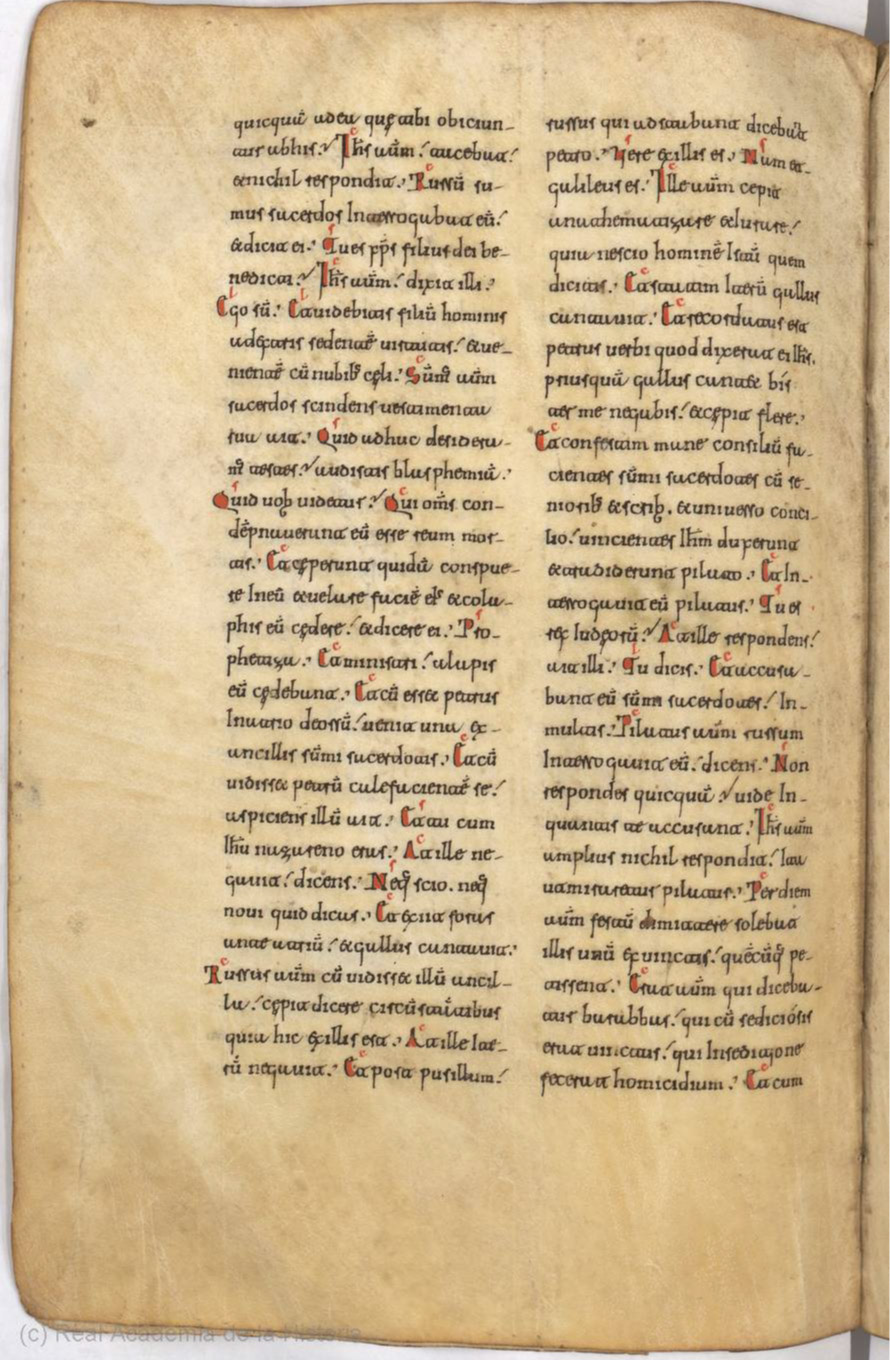 quicquā ad ea quę tibi obiciun-
tur ab his? Ihs aūm tacebat
& nichil respondit. Rursū su-
mus sacerdos Interrogabat eū
& dicit ei. Tu es xp̄s filius dei be-
nedicti? Ihs aūm dixit illi.
Ego sū. Et uidebitis filiū hominis
a dextris sedentē uirtutis & ue-
nientē cū nubib; cęli. Sūms aūm
sacerdos scindens uestimenta
sua ait. Quid adhuc desidera-
ms testes? audistis blasphemiā.
Quid uob uidetur? Qui oms con-
dēpnauerunt eū esse reum mor-
tis. Et cęperunt quidā conspue-
re In eū & uelare faciē ejs & cola-
phis eū cędere & dicere ei. Pro-
phetiza. Et ministri alapis
eū cędebant. Et cū ess& petrus
In atrio deorsū uenit una ex
ancillis sūmi sacerdotis. Et cū
uidiss& petrū calefacientē se
aspiciens illū ait. Et tu cum
Ihu nazareno eras. At ille ne-
gauit dicens. Neq; scio. neq;
noui quid dicas. Et exiit foras
ante atriū & gallus cantauit.
Rursus aūm cū uidiss& illū ancil-
la cępit dicere circūstantibus
quia hic ex illis est. At ille ite-
rū negauit. Et post pusillum
rursus qui adstabunt dicebāt
petro. Uere ex illis es. Nam et
galileus es. Ille aūm cepit
anathematizare & iurare
quia nescio hominē Istū quem
dicitis. Et statim Iterū gallus
cantauit. Et recordatus est
petrus uerbi quod dixerat ei Ihs,
priusquā gallus cant& bis
ter me negabis & cępit flere.
Et confestim mane consiliū fa-
cientes sūmi sacerdotes cū se-
niorib; & scrib. & uniuerso conci-
lio uincientes Ihm duxerunt
& tradiderunt pilato. Et In-
terrogauit eū pilatus. Tu es
rex Iudęorū? At ille respondens
ait illi. Tu dicis. Et accusa-
bant eū sūmi sacerdotes In
multis. Pilatus aūm rursum
Interrogauit eū dicens. Non
respondes quicquā? uide In
quantis te accusant. Ihs aūm
amplius nichil respondit ita
ut miraretur pilatus. Per diem
aūm festū dimittere solebat
illis unū ex uinctis quēcūq; pe-
tissent. Erat aūm qui diceba-
tur barabbas qui cū sediciosis
erat uinctus qui In seditione
fecerat homicidium. Et cum
(c) Real Academia de la Historia